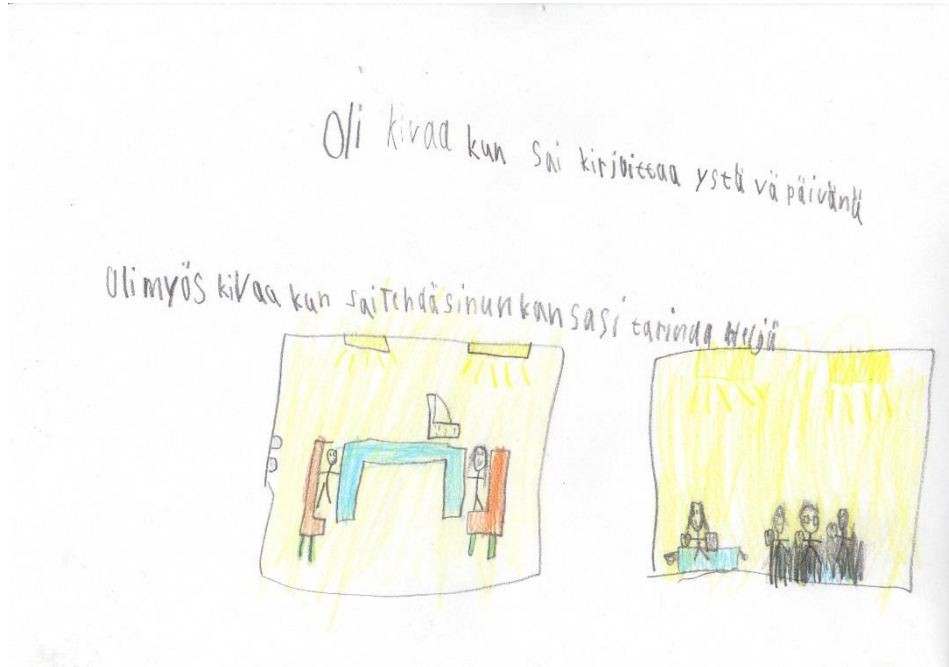 Oli kivaa kun sai kirjoittaa ystävä päivänä
Oli myös kivaa kun sai Tehdä sinun kansasi tarinaa Heljä